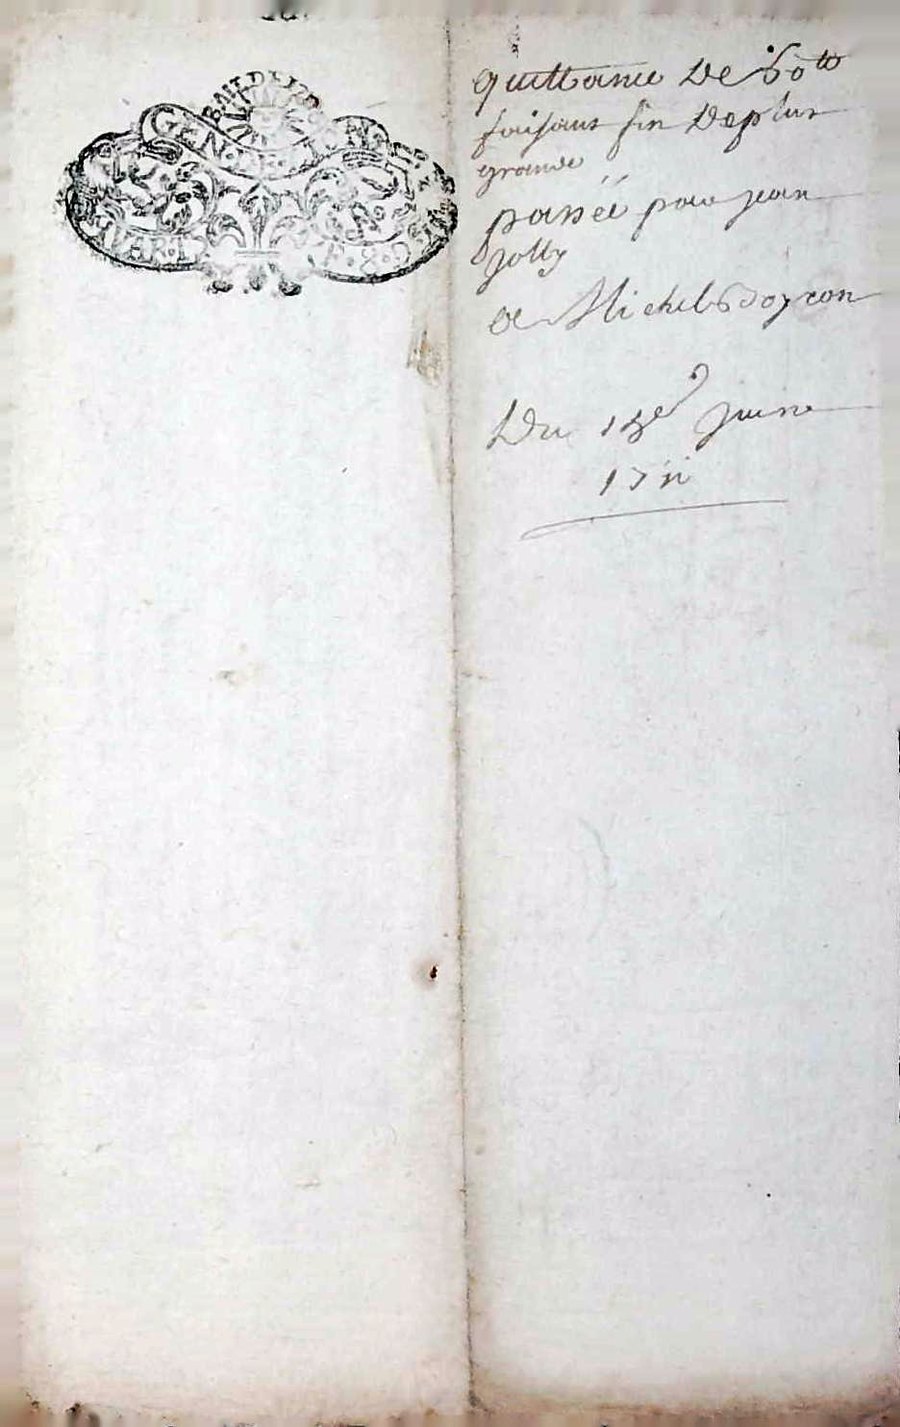 BAIL DE
GEN DE
QVART
quittance De 60 tt
faisant fin De plus
grande
passée par jean
Jolly
a Michel Boyron
Du 13e Juin
1711